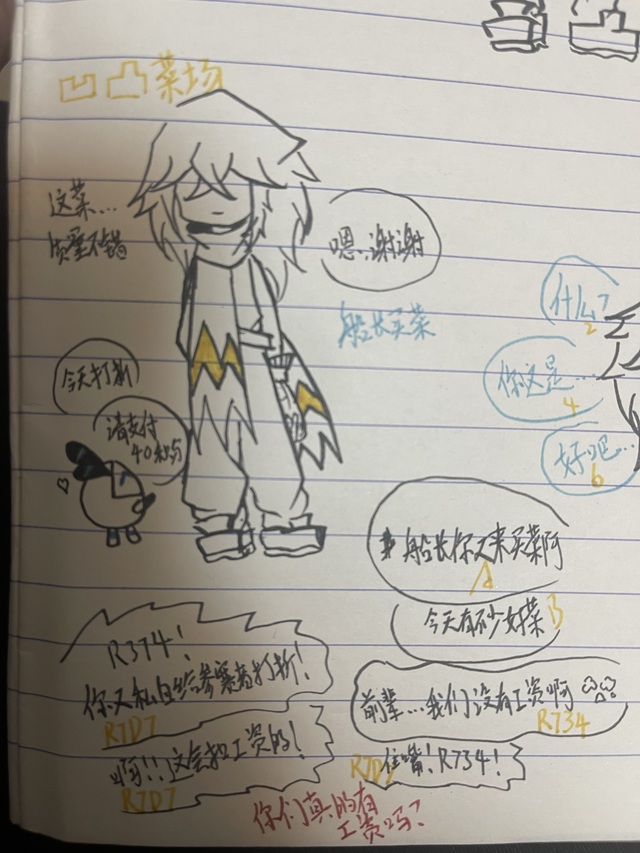 凹凸菜场
这菜...
质量不错
嗯,谢谢
船长买菜
今天打折
请支付
40积分
什么?
2
你这是...
4
好吧...
6
船长你又来买菜啊
A
今天有不少好菜 B
R374!
你又私自给参赛者打折!
R7D7
啊!!这会扣工资的!
R7D7
前辈...我们没有工资啊
R734
R7D7 住嘴!R734!
你们真的有
工资吗?